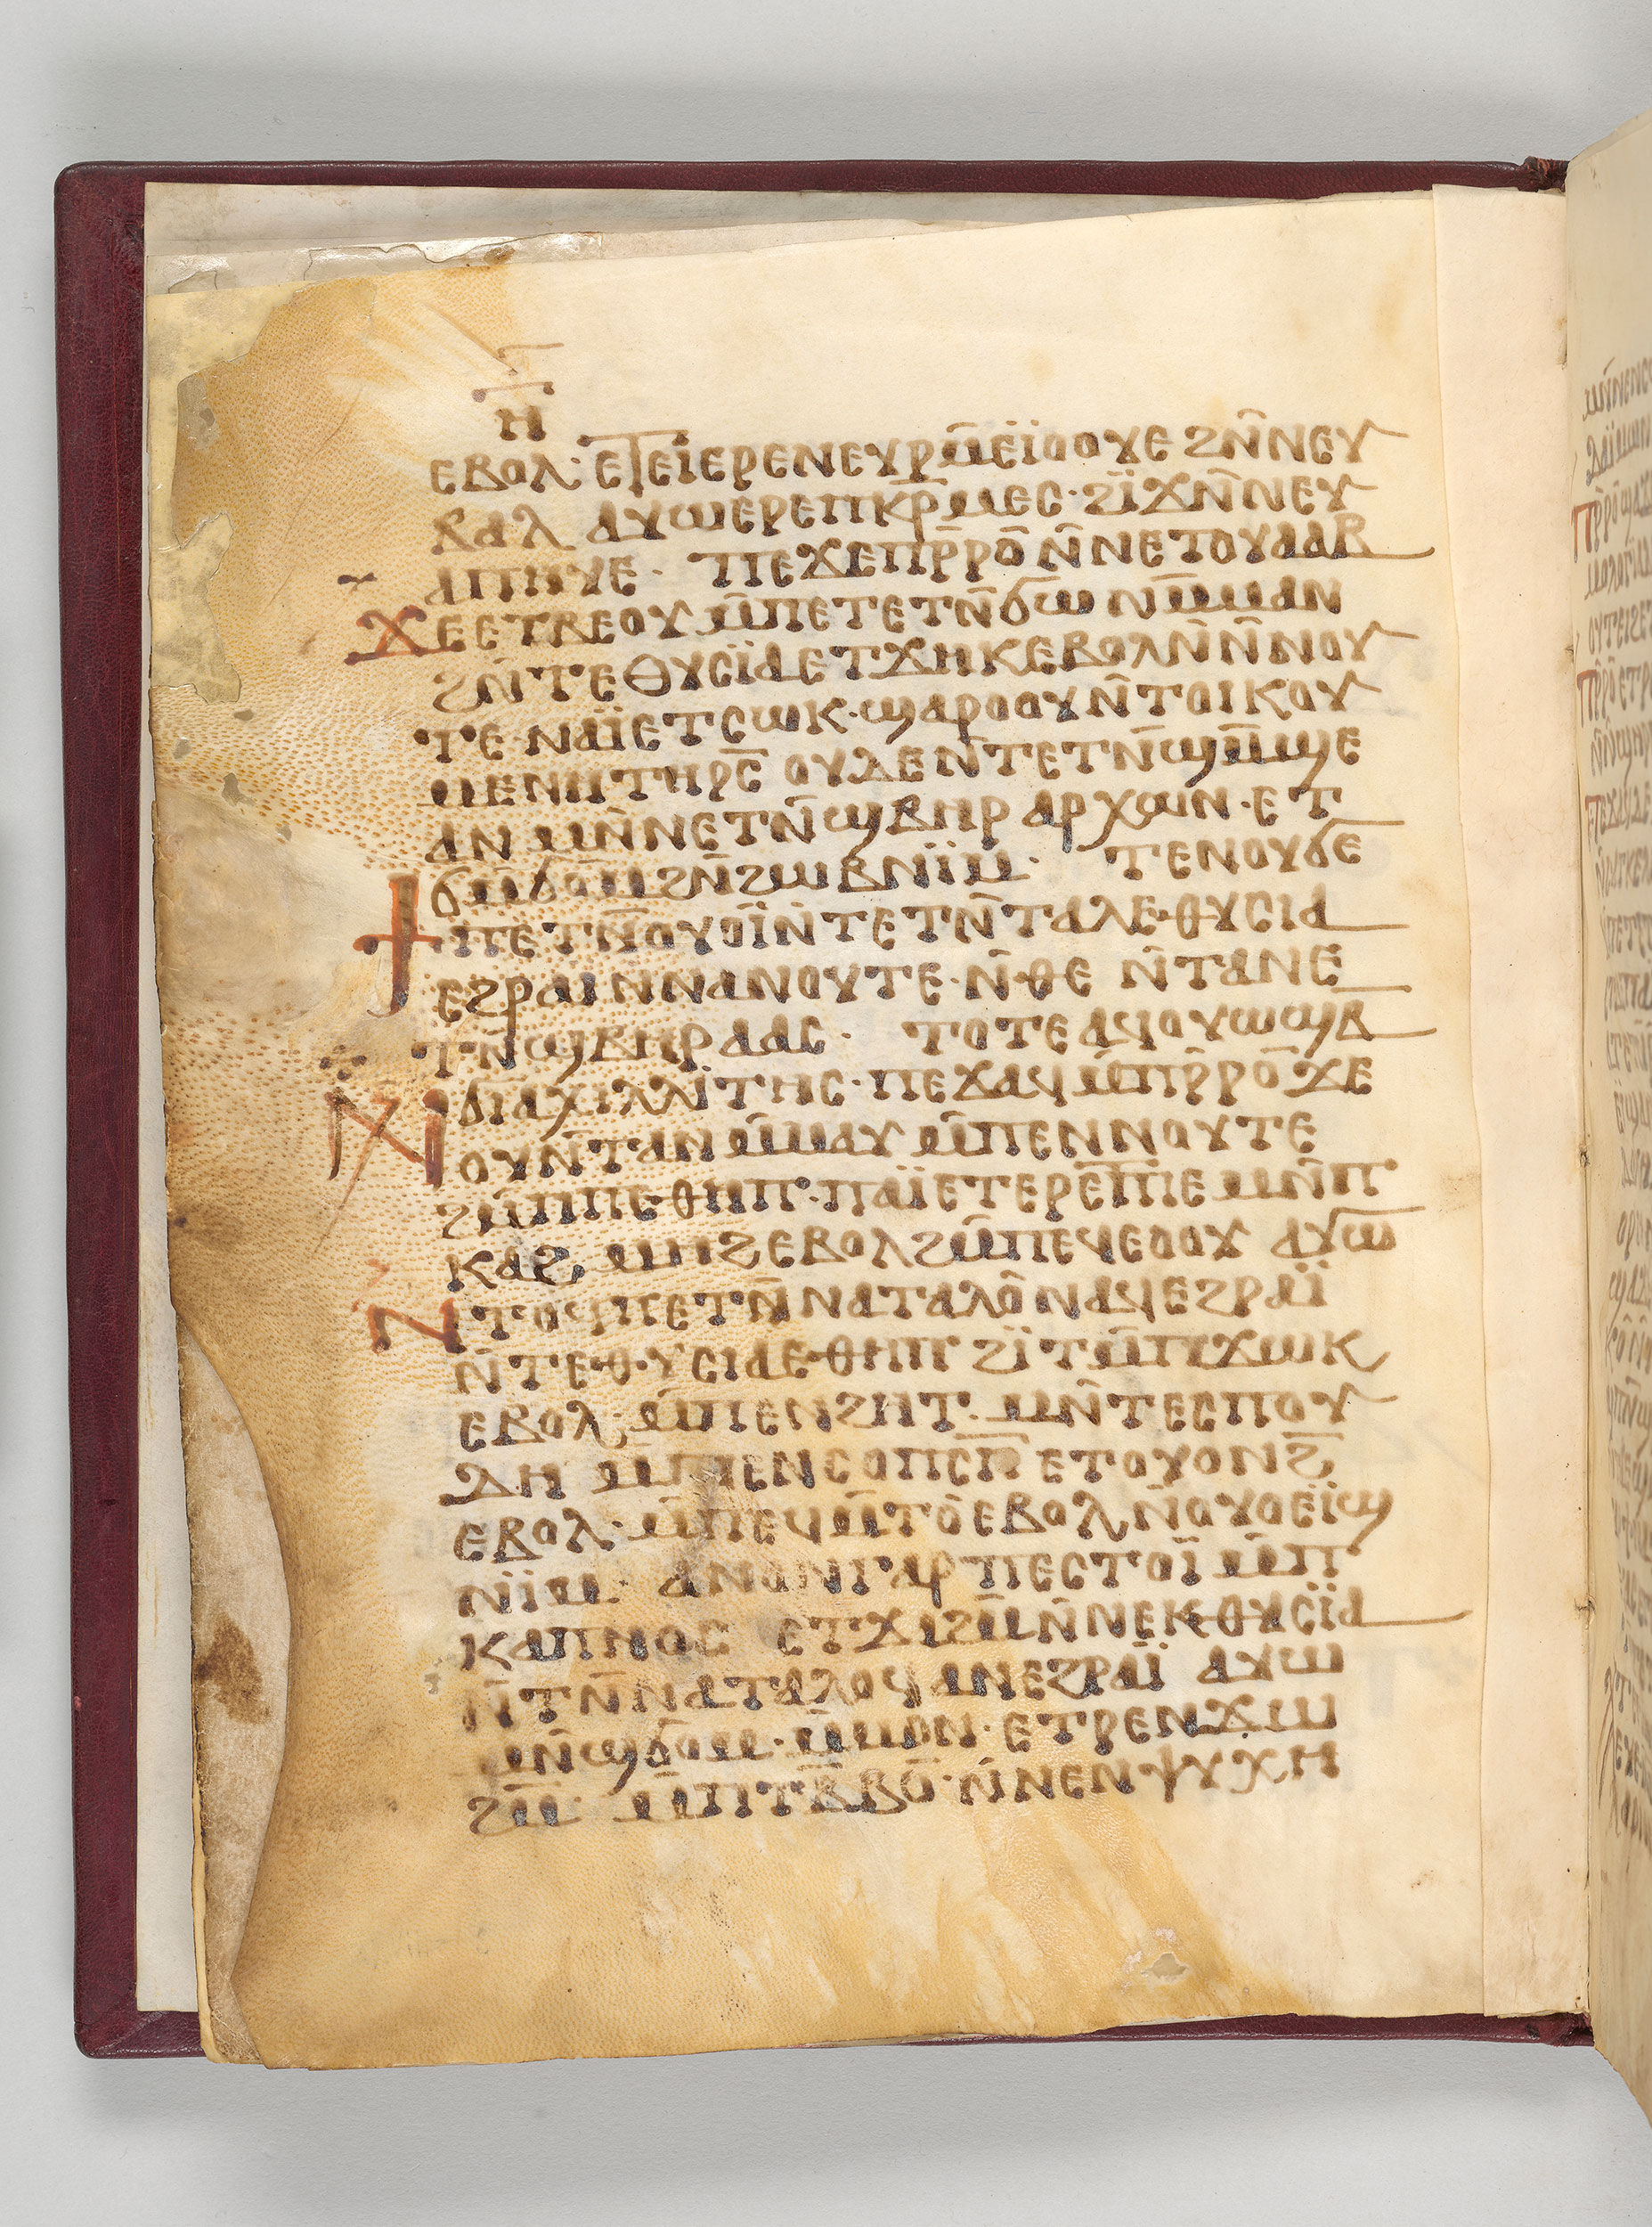 ⲏ̄
ⲉⲃⲟⲗ· ⲉⲧⲉⲓⲉⲣⲉⲛⲉⲩⲣⲙ̄ⲉⲓ̈ⲟⲟⲩⲉ ϩⲛ̄ⲛⲉⲩ
ⲃⲁⲗ ⲁⲩⲱⲉⲣⲉⲡⲕⲣ̄ⲙⲉⲥ· ϩⲓ̈ϫⲛ̄ⲛⲉⲩ
ⲁⲡⲏⲩⲉ· ⲡⲉϫⲉⲡⲣ̄ⲣⲟ̄ ⲛ̄ⲛⲉⲧⲟⲩⲁⲁⲃ
ϫⲉⲉⲧⲃⲉⲟⲩ ⲙ̄ⲡⲉⲧⲉⲧⲛ̄ϭⲱ ⲛⲙ̄ⲙⲁⲛ
ϩⲛ̄ⲧⲉⲑⲩⲥⲓ̈ⲁⲉⲧϫⲏⲕⲉⲃⲟⲗⲛ̄ⲛ̄ⲛⲟⲩ
ⲧⲉ·ⲛⲁⲓ̈ⲉⲧⲥⲱⲕ·ϣⲁⲣⲟⲟⲩⲛ̄ⲧⲟⲓⲕⲟⲩ
ⲙⲉⲛⲏⲧⲏⲣⲥ̄ ⲟⲩⲇⲉⲛ̄ⲧⲉⲧⲛ̄ϣⲙ̄ϣⲉ
ⲁⲛ ⲙⲛ̄ⲛⲉⲧⲛ̄ϣⲃⲏⲣ ⲁⲣⲭⲱⲛ·ⲉⲧ
ϭⲙ̄ϭⲟⲙϩⲛ̄ϩⲱⲃⲛⲓ̈ⲙ· ⲧⲉⲛⲟⲩϭⲉ
ϯⲡⲉⲧⲛ̄ⲟⲩⲟⲓ̈ⲛ̄ⲧⲉⲧⲛ̄ⲧⲁⲗⲉ·ⲑⲩⲥⲓⲁ
ⲉϩⲣⲁⲓⲛ̄ⲛⲁⲛⲟⲩⲧⲉ·ⲛ̄ⲑⲉ ⲛ̄ⲧⲁⲛⲉ
ⲧⲛ̄ϣⲃⲏⲣⲁⲁⲥ· ⲧⲟⲧⲉⲁϥⲟⲩⲱϣⲃ
ⲛϭⲓⲁⲭⲓⲗⲗⲓ̈ⲧⲏⲥ·ⲡⲉϫⲁϥⲙ̄ⲡⲣ̄ⲣⲟ̄ ϫⲉ
ⲟⲩⲛ̄ⲧⲁⲛⲙ̄ⲙⲁⲩ ⲙ̄ⲡⲉⲛⲛⲟⲩⲧⲉ
ϩⲙ̄ⲡⲡⲉⲑⲏⲡ·ⲡⲁⲓ̈ⲉⲧⲉⲣⲉⲧⲡⲉ ⲙⲛ̄ⲡ
ⲕⲁϩ ⲙⲏϩⲉⲃⲟⲗϩⲙ̄ⲡⲉϥⲉⲟⲟⲩ ⲁⲩⲱ̄
ⲛⲧⲟϥⲡⲉⲧⲛ̄ⲛⲁⲧⲁⲗⲟ̄ⲛⲁϥⲉϩⲣⲁⲓ̈
ⲛ̄ⲧⲉⲑⲩⲥⲓⲁⲉⲑⲏⲡ ϩⲓ̈ⲧⲙ̄ⲡϫⲱⲕ
ⲉⲃⲟⲗ·ⲙ̄ⲡⲉⲛϩⲏⲧ·ⲙⲛ̄ⲧⲉⲥⲡⲟⲩ
ⲇⲏ ⲙ̄ⲡⲉⲛⲥⲟⲡⲥⲡ̄ ⲉⲧⲟⲩⲟⲛϩ̄
ⲉⲃⲟⲗ·ⲙ̄ⲡⲉϥⲙ̄ⲧⲟⲉⲃⲟⲗⲛ̄ⲟⲩⲟⲉⲓ̈ϣ
ⲛⲓ̈ⲙ· ⲁⲛⲟⲛⲅⲁⲣⲡⲉⲥⲧⲟⲓ̈ ⲙ̄ⲡ
ⲕⲁⲡⲛⲟⲥ ⲉⲧϫⲓϩⲙ̄ⲛ̄ⲛⲉⲕⲑⲩⲥⲓ̈ⲁ
ⲛ̄ⲧⲛ̄ⲛⲁⲧⲁⲗⲟϥⲁⲛⲉϩⲣⲁⲓ̈ ⲁⲩⲱ
ⲙⲛ̄ϣϭⲟⲙ·ⲙ̄ⲙⲟⲛ·ⲉⲧⲣⲉⲛϫⲱ
ϩⲙ̄ ⲙ̄ⲡⲧⲃ̄ⲃⲟ̄·ⲛ̄ⲛⲉⲛⲯⲩⲭⲏ